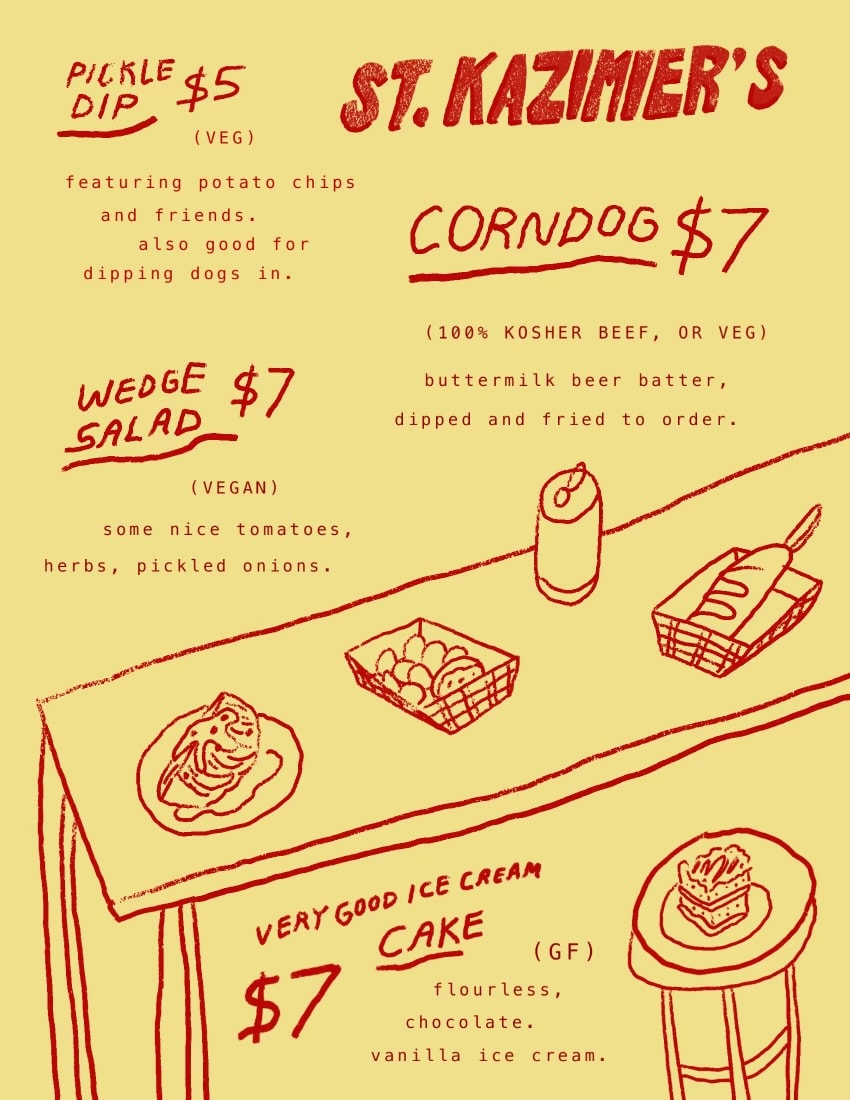 ST. KAZIMIER'S
PICKLE
DIP $5
(VEG)
featuring potato chips
and friends.
also good for
dipping dogs in.
CORNDOG $7
(100% KOSHER BEEF, OR VEG)
buttermilk beer batter,
dipped and fried to order.
WEDGE
SALAD $7
(VEGAN)
some nice tomatoes,
herbs, pickled onions.
VERY GOOD ICE CREAM
CAKE
$7
(GF)
flourless,
chocolate.
vanilla ice cream.